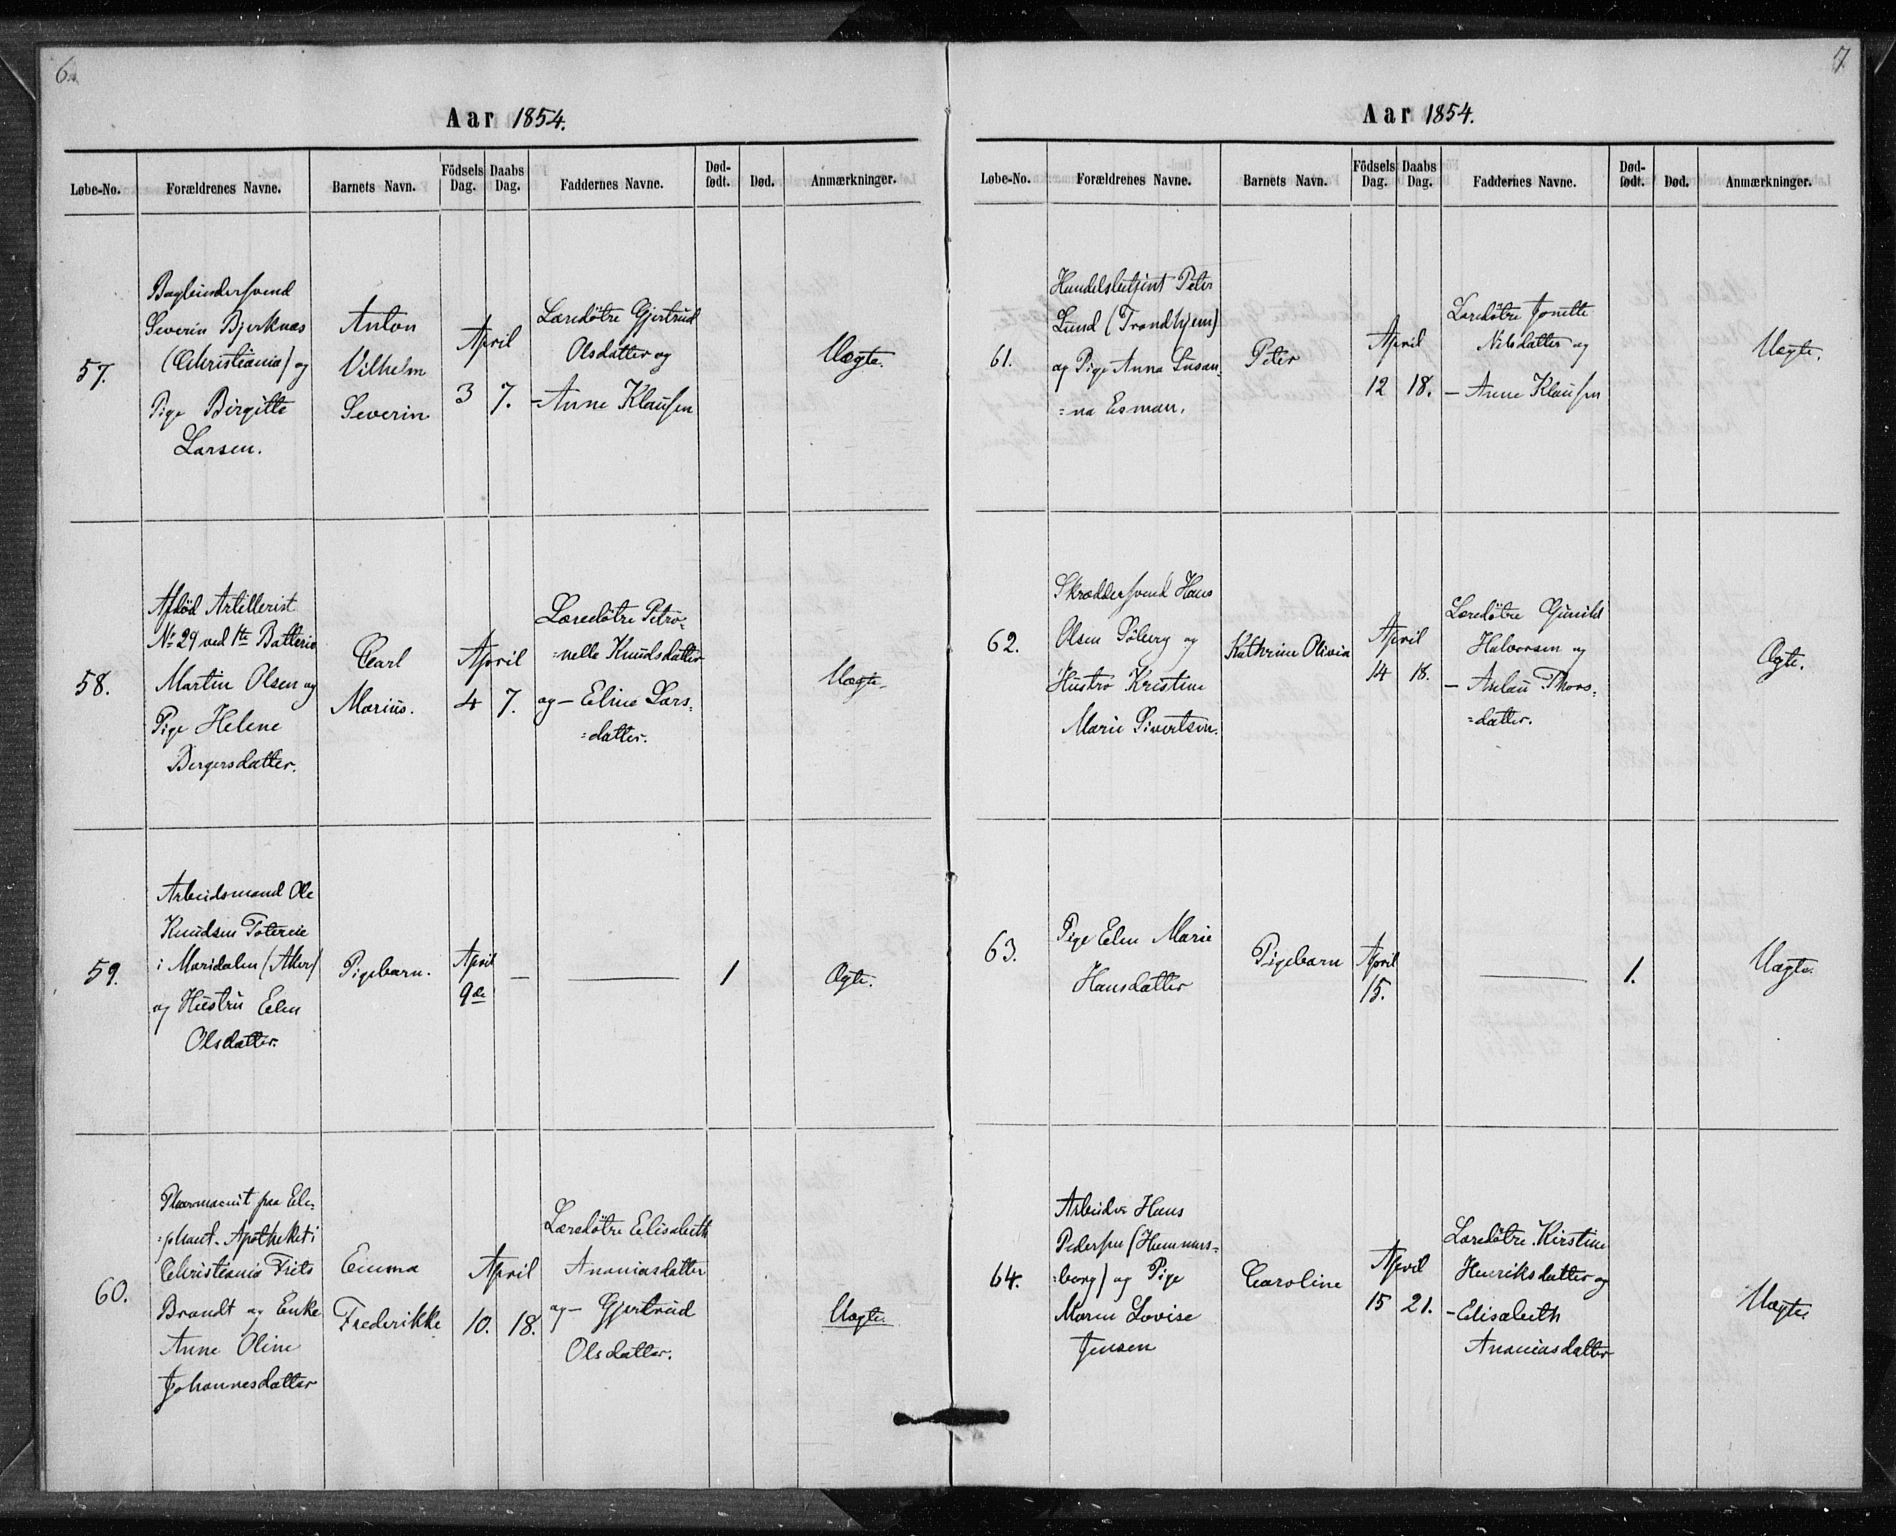 6.
Aar 1854.
Løbe-No. Forældrenes Navne. Barnets Navn. Födsels Dag. Daabs Dag. Faddernes Navne. Død-født. Død. Anmærkninger.
57.
Bogbindersvend
Severin Bjerknæs
(Christiania) og
Pige Birgitte
Larsen.
Anton
Vilhelm
Severin
April
3 7.
Læredøtre Gjertrud
Olsdatter og
- Anne Klausen
Uægte.
58.
Afdød Artillerist
No 29 ved 1te Batterie
Martin Olsen og
Pige Helene
Bergersdatter.
Carl
Marius.
April
4 7.
Læredøtre Petro-
=nelle Knudsdatter
og - Eline Lars-
=datter.
Uægte.
59.
Arbeidsmand Ole
Knudsen
i Maridalen (Aker)
og Hustru Elen
Olsdatter.
Pigebarn.
April
9de
—
—
1
Ægte.
60.
Pharmaceut paa Ele-
=phant-Apotheket i
Christiania Frits
Brandt og Enke
Anne Oline
Johannesdatter
Emma
Frederikke
April
10. 18.
Læredøtre Elisabeth
Ananiasdatter
og - Gjertrud
Olsdatter.
Uægte.
7.
Aar 1854.
Løbe-No. Forældrenes Navne. Barnets Navn. Födsels Dag. Daabs Dag. Faddernes Navne. Død-født. Død. Anmærkninger.
61.
Handelsbetjent Peter
Lund (Trondhjem)
og Pige Anna Susan-
=na Esman.
Peter
April
12 18.
Læredøtre Jonette
Nilsdatter og
- Anne Klausen
Uægte.
62.
Skræddersvend Hans
Olsen Søberg og
Hustro Kristine
Marie Sivertsen.
Kathrine Olivia
April
14 18.
Læredøtre Gunild
Halvorsen og
- Aslau Thors-
=datter.
Ægte.
63.
Pige Elen Marie
Hansdatter
Pigebarn
April
15.
—
1.
Uægte.
64.
Arbeider Hans
Pedersen (Hammers-
=borg) og Pige
Maren Lovise
Jensen
Caroline
April
15 21.
Læredøtre Kirstine
Henriksdatter og
- Elisabeth
Ananiasdatter
Uægte.